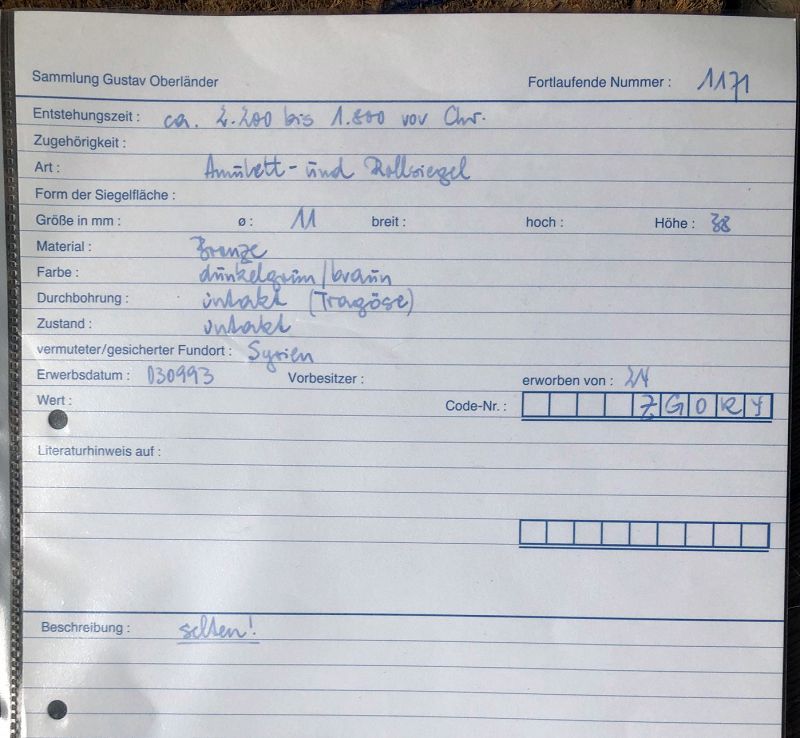 Sammlung Gustav Oberländer Fortlaufende Nummer : 1171
Entstehungszeit : ca. 2.200 bis 1.800 vor Chr.
Zugehörigkeit :
Art : Amulett- und Rollsiegel
Form der Siegelfläche :
Größe in mm : ø : 11 breit : hoch : Höhe : 38
Material : Bronze
Farbe : dunkelgrün/braun
Durchbohrung : intakt (Tragöse)
Zustand : intakt
vermuteter/gesicherter Fundort : Syrien
Erwerbsdatum : 030993 Vorbesitzer : erworben von :
Wert : Code-Nr. : ZGORY
Literaturhinweis auf :
Beschreibung : selten!